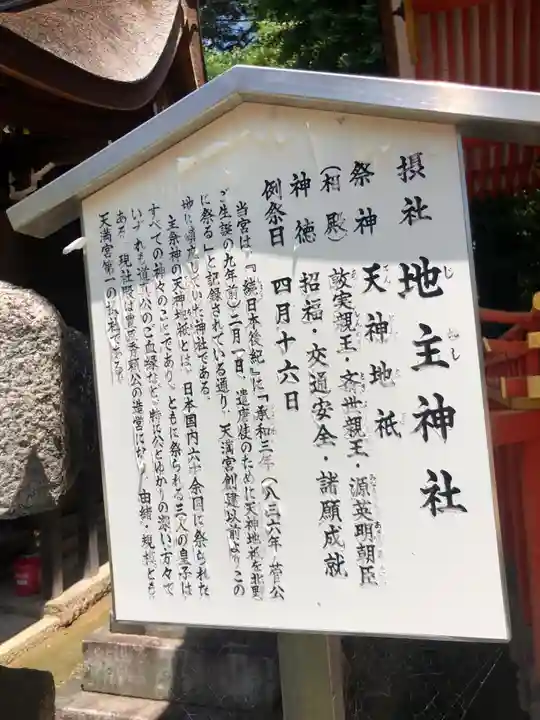 摂社 地主神社
じ ぬし
祭神 天神地祇
(相殿) 敦実親王・斉世親王・源英明朝臣
神徳 招福・交通安全・諸願成就
例祭日 四月十六日
当宮は、『続日本後紀』に「承和三年(八三六年、菅公
ご生誕の九年前)二月一日、遣唐使のために天神地祇を北野
に祭る」と記録されている通り、天満宮創建以前よりこの
地に していた神社である。
主祭神の天神地祇とは、日本国内六十余国に祭られた
すべての神々のことであり、ともに祭られる三人の皇子は
いずれも道真公のご血縁など、特に公とゆかりの深い方々で
ある。現社殿は豊臣秀頼公の造営にかかり、由緒・規模とも
天満宮第一の摂社である。